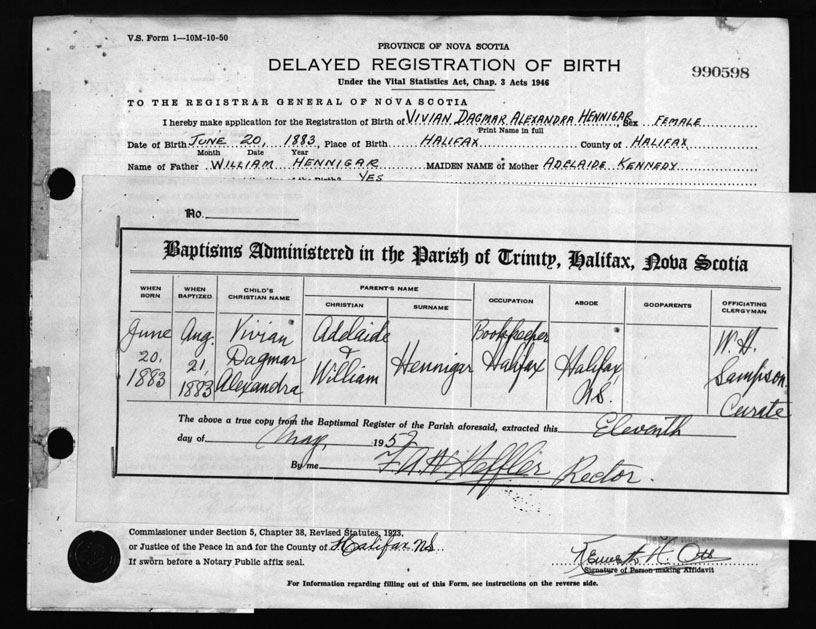 V.S. Form 1—10M-10-50
PROVINCE OF NOVA SCOTIA
DELAYED REGISTRATION OF BIRTH
990598
Under the Vital Statistics Act, Chap. 3 Acts 1946
TO THE REGISTRAR GENERAL OF NOVA SCOTIA
I hereby make application for the Registration of Birth of VIVIAN DAGMAR ALEXANDRA HENNIGAR, Sex FEMALE
Print Name in full
Date of Birth JUNE 20, 1883, Place of Birth HALIFAX County of HALIFAX
Month Date Year
Name of Father WILLIAM HENNIGAR MAIDEN NAME of Mother ADELAIDE KENNEDY
YES
No.
Baptisms Administered in the Parish of Trinity, Halifax, Nova Scotia
WHEN BORN WHEN BAPTIZED CHILD'S CHRISTIAN NAME PARENT'S NAME OCCUPATION ABODE GODPARENTS OFFICIATING CLERGYMAN
CHRISTIAN SURNAME
June Aug. Vivian Adelaide Bookkeeper W. H.
20, 21, Dagmar & Hennigar Halifax Halifax, Sampson
1883 1883 Alexandra William N.S. Curate
The above a true copy from the Baptismal Register of the Parish aforesaid, extracted this Eleventh
day of May, 1952
By me Heffler Rector.
Commissioner under Section 5, Chapter 38, Revised Statutes, 1923,
or Justice of the Peace in and for the County of Halifax N.S.
If sworn before a Notary Public affix seal.
Kenneth H. Ott
Signature of Person making Affidavit
For Information regarding filling out of this Form, see instructions on the reverse side.